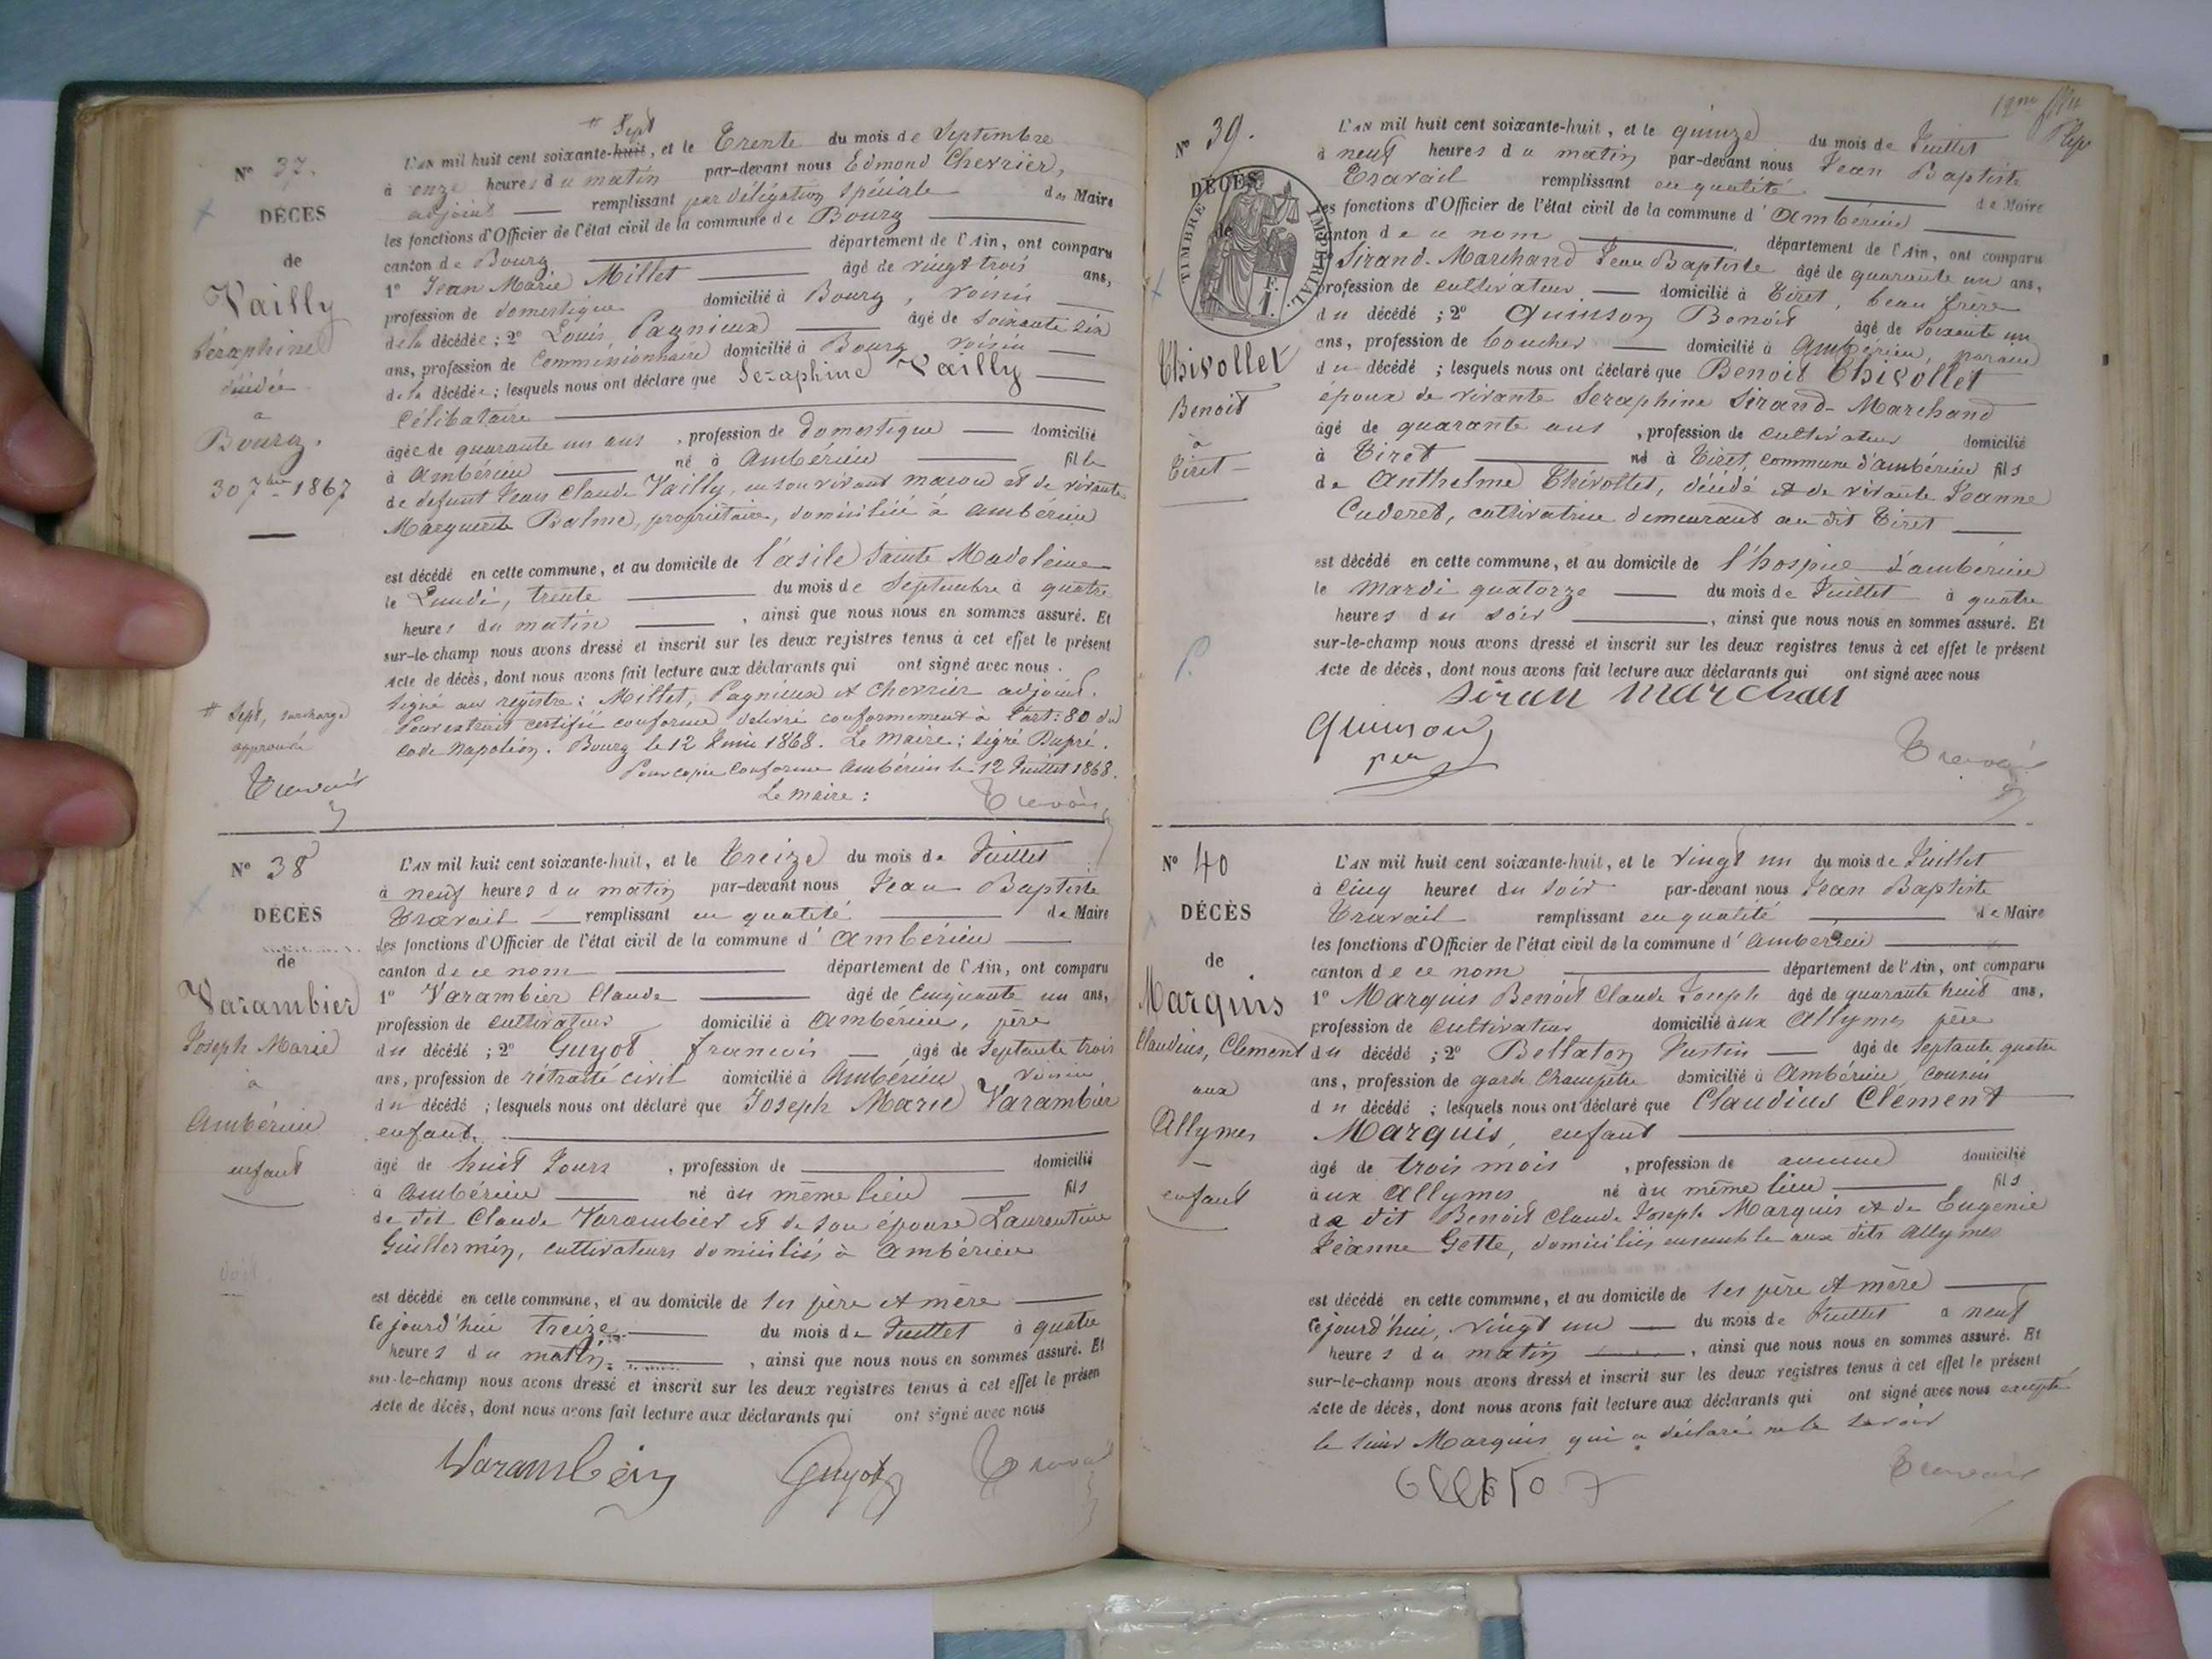 N° 37.
DÉCÈS
de
Vailly
Séraphine
décédée
à
Bourg.
30 7bre 1867
# Sept, surcharge
approuvée
Travail
# Sept
L'AN mil huit cent soixante-huit, et le Trente du mois de Septembre
à onze heures du matin par-devant nous Edmond Chevrier,
adjoint remplissant par délégation spéciale des Maire
les fonctions d'Officier de l'état civil de la commune de Bourg
canton de Bourg département de l'Ain, ont comparu
1° Jean Marie Millet âgé de vingt trois ans,
profession de domestique domicilié à Bourg, voisin
de la décédée ; 2° Louis Pagnieux âgé de soixante six
ans, profession de Commissionnaire domicilié à Bourg voisin
de la décédée ; lesquels nous ont déclaré que Séraphine Vailly
célibataire
âgée de quarante un ans, profession de domestique domicilié
à Ambérieu né à Ambérieu fille
de défunt Jean Claude Vailly, en son vivant maçon et de vivante
Marguerite Balme, propriétaire, domiciliée à Ambérieu
est décédé en cette commune, et au domicile de l'asile Sainte Madeleine
le Lundi, trente du mois de Septembre à quatre
heures du matin, ainsi que nous nous en sommes assuré. Et
sur-le-champ nous avons dressé et inscrit sur les deux registres tenus à cet effet le présent
Acte de décès, dont nous avons fait lecture aux déclarants qui ont signé avec nous.
Signé au registre : Millet, Pagnieux et Chevrier adjoint.
Pour extrait certifié conforme délivré conformement à l'art : 80 du
code Napoléon. Bourg le 12 Juin 1868. Le Maire : signé Dupré.
Pour copie Conforme Ambérieu le 12 Juillet 1868.
Le Maire : Travail
N° 38
DÉCÈS
de
Varambier
Joseph Marie
à
Ambérieu
enfant
L'AN mil huit cent soixante-huit, et le Treize du mois de Juillet
à neuf heures du matin par-devant nous Jean Baptiste
Travail remplissant en qualité de Maire
les fonctions d'Officier de l'état civil de la commune d'Ambérieu
canton de ce nom département de l'Ain, ont comparu
1° Varambier Claude âgé de Cinquante un ans,
profession de cultivateur domicilié à Ambérieu, père
du décédé ; 2° Guyot françois âgé de Septante trois
ans, profession de rétraité civil domicilié à Ambérieu voisin
du décédé ; lesquels nous ont déclaré que Joseph Marie Varambier
enfant,
âgé de huit Jours, profession de domicilié
à Ambérieu né au même lieu fils
de dit Claude Varambier et de son épouse Laurentine
Guillermin, cultivateurs domiciliés à Ambérieu
est décédé en cette commune, et au domicile de ses père et mère
Cejourd'hui treize du mois de Juillet à quatre
heures du matin, ainsi que nous nous en sommes assuré. Et
sur-le-champ nous avons dressé et inscrit sur les deux registres tenus à cet effet le présen
Acte de décès, dont nous avons fait lecture aux déclarants qui ont signé avec nous
Guyot Travail
N° 39.
DÉCÈS
de
TIMBRE IMPÉRIAL
1 F.
Thivollet
Benoit
à
Tiret
P.
L'AN mil huit cent soixante-huit, et le quinze du mois de Juillet
à neuf heures du matin par-devant nous Jean Baptiste
Travail remplissant en qualité de Maire
les fonctions d'Officier de l'état civil de la commune d'Ambérieu
canton de ce nom département de l'Ain, ont comparu
Sirand-Marchand Jean Baptiste âgé de quarante un ans,
profession de cultivateur domicilié à Tiret, beau frère
du décédé ; 2° Quinson Benoit âgé de soixante un
ans, profession de boucher domicilié à Ambérieu, parent
du décédé ; lesquels nous ont déclaré que Benoit Thivollet
époux de vivante Seraphine Sirand-Marchand
âgé de quarante ans, profession de cultivateur domicilié
à Tiret né à Tiret, commune d'Ambérieu fils
de Anthelme Thivollet, décédé et de vivante Jeanne
Cuderet, cultivatrice demeurant au dit Tiret
est décédé en cette commune, et au domicile de l'hospice d'ambérieu
le mardi quatorze du mois de Juillet à quatre
heures du soir, ainsi que nous nous en sommes assuré. Et
sur-le-champ nous avons dressé et inscrit sur les deux registres tenus à cet effet le présent
Acte de décès, dont nous avons fait lecture aux déclarants qui ont signé avec nous
Siran Marchan
Quinson
Travail
N° 40
DÉCÈS
de
Marquis
Claudius, Clément
aux
Allymes
enfant
L'AN mil huit cent soixante-huit, et le vingt un du mois de Juillet
à Cinq heures du soir par-devant nous Jean Baptiste
Travail remplissant en qualité de Maire
les fonctions d'Officier de l'état civil de la commune d'Ambérieu
canton de ce nom département de l'Ain, ont comparu
1° Marquis Benoit Claude Joseph âgé de quarante huit ans,
profession de Cultivateur domicilié aux Allymes père
du décédé ; 2° Bellaton Justin âgé de Septante quatre
ans, profession de garde Champêtre domicilié à Ambérieu, cousin
du décédé ; lesquels nous ont déclaré que Claudius Clément
Marquis, enfant
âgé de trois mois, profession de aucune domicilié
aux Allymes né au même lieu fils
de dit Benoit Claude Joseph Marquis et de Eugénie
Jéanne Gette, domiciliés ensemble aux dits Allymes
est décédé en cette commune, et au domicile de ses père et mère
Cejourd'hui, vingt un du mois de Juillet à neuf
heures du matin, ainsi que nous nous en sommes assuré. Et
sur-le-champ nous avons dressé et inscrit sur les deux registres tenus à cet effet le présent
Acte de décès, dont nous avons fait lecture aux déclarants qui ont signé avec nous excepté
le sieur Marquis qui a déclaré ne le savoir
Travail